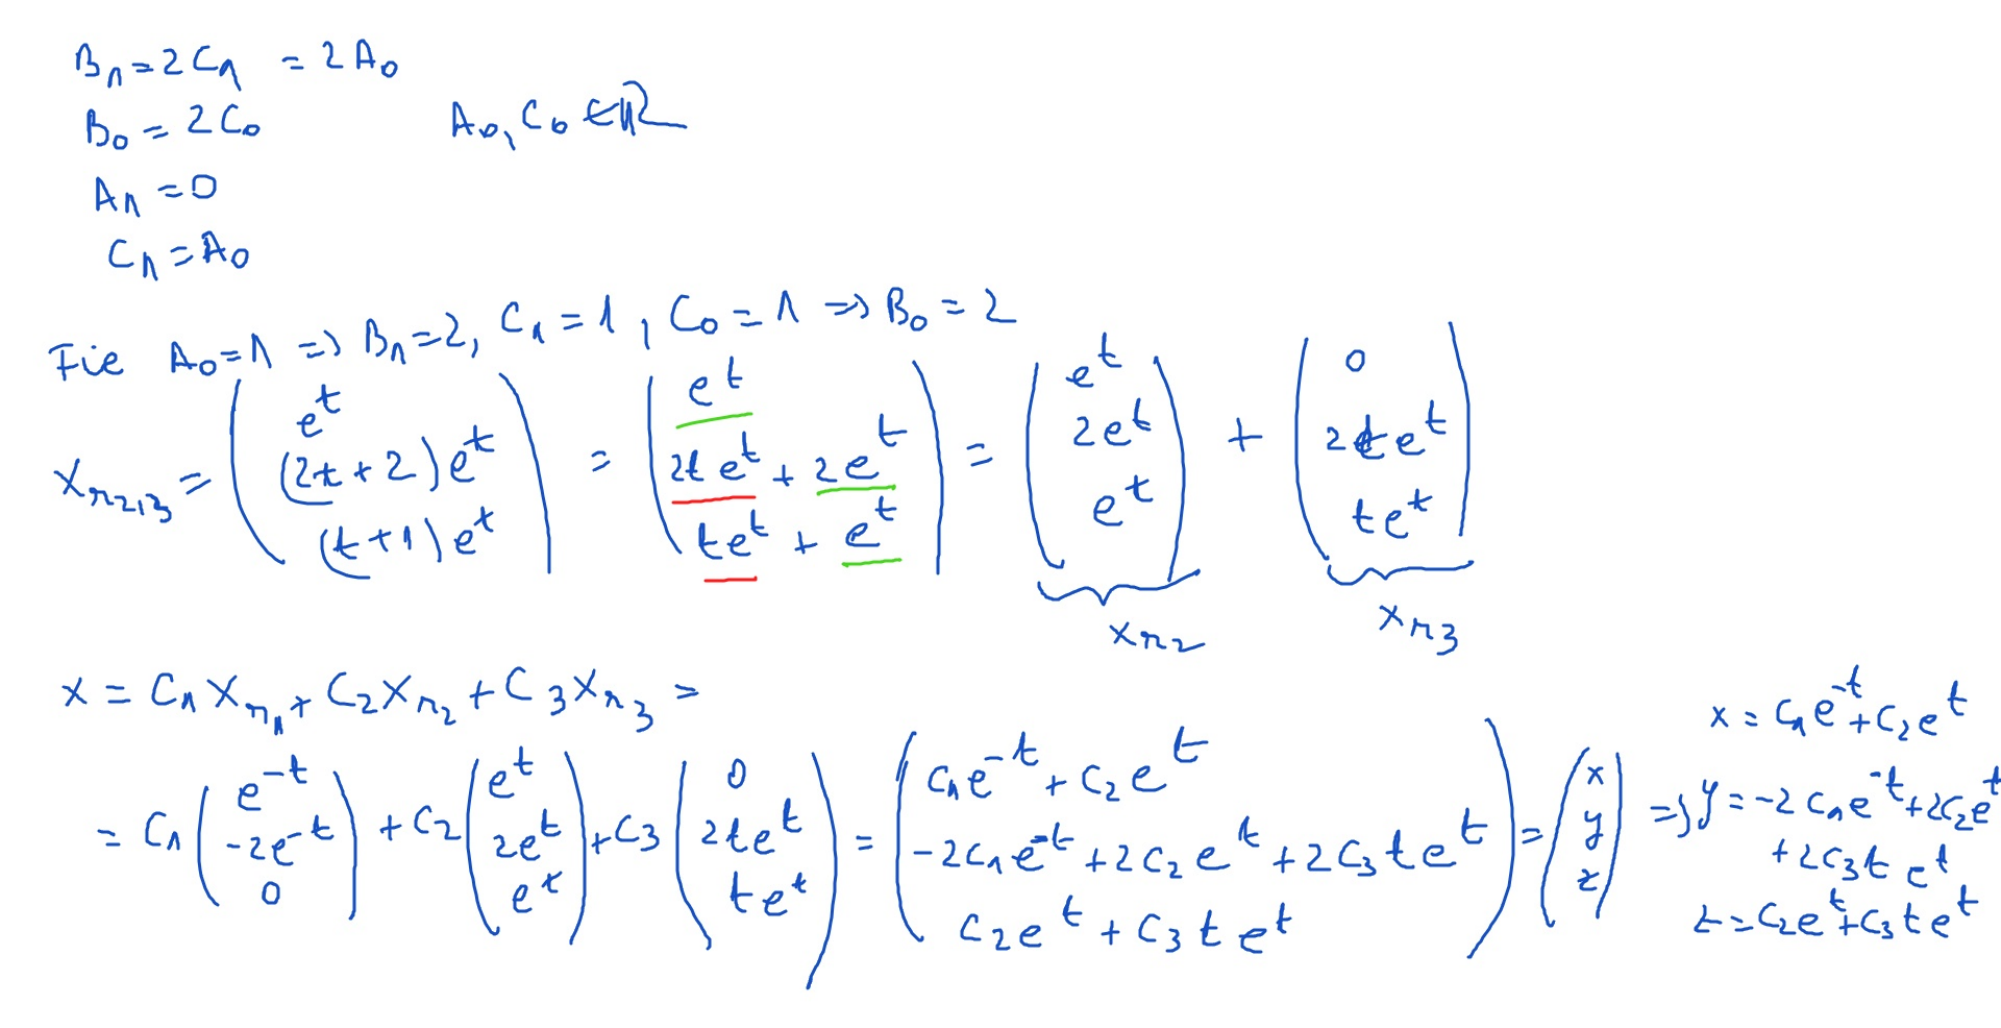 B₁ = 2C₁ = 2A₀
B₀ = 2C₀    A₀, C₀ ∈ ℝ
A₁ = 0
C₁ = A₀
Fie A₀ = 1 => B₁ = 2, C₁ = 1, C₀ = 1 => B₀ = 2
x_{r_{2,3}} = (e^t ; (2t+2)e^t ; (t+1)e^t) = (e^t ; 2te^t + 2e^t ; te^t + e^t) = (e^t ; 2e^t ; e^t) + (0 ; 2te^t ; te^t)
x_{r_2}    x_{r_3}
x = C₁x_{r_1} + C₂x_{r_2} + C₃x_{r_3} =
= C₁(e^{-t} ; -2e^{-t} ; 0) + C₂(e^t ; 2e^t ; e^t) + C₃(0 ; 2te^t ; te^t) = (C₁e^{-t} + C₂e^t ; -2C₁e^{-t} + 2C₂e^t + 2C₃te^t ; C₂e^t + C₃te^t) = (x ; y ; z) =>
x = C₁e^{-t} + C₂e^t
y = -2C₁e^{-t} + 2C₂e^t
+ 2C₃t e^t
z = C₂e^t + C₃te^t